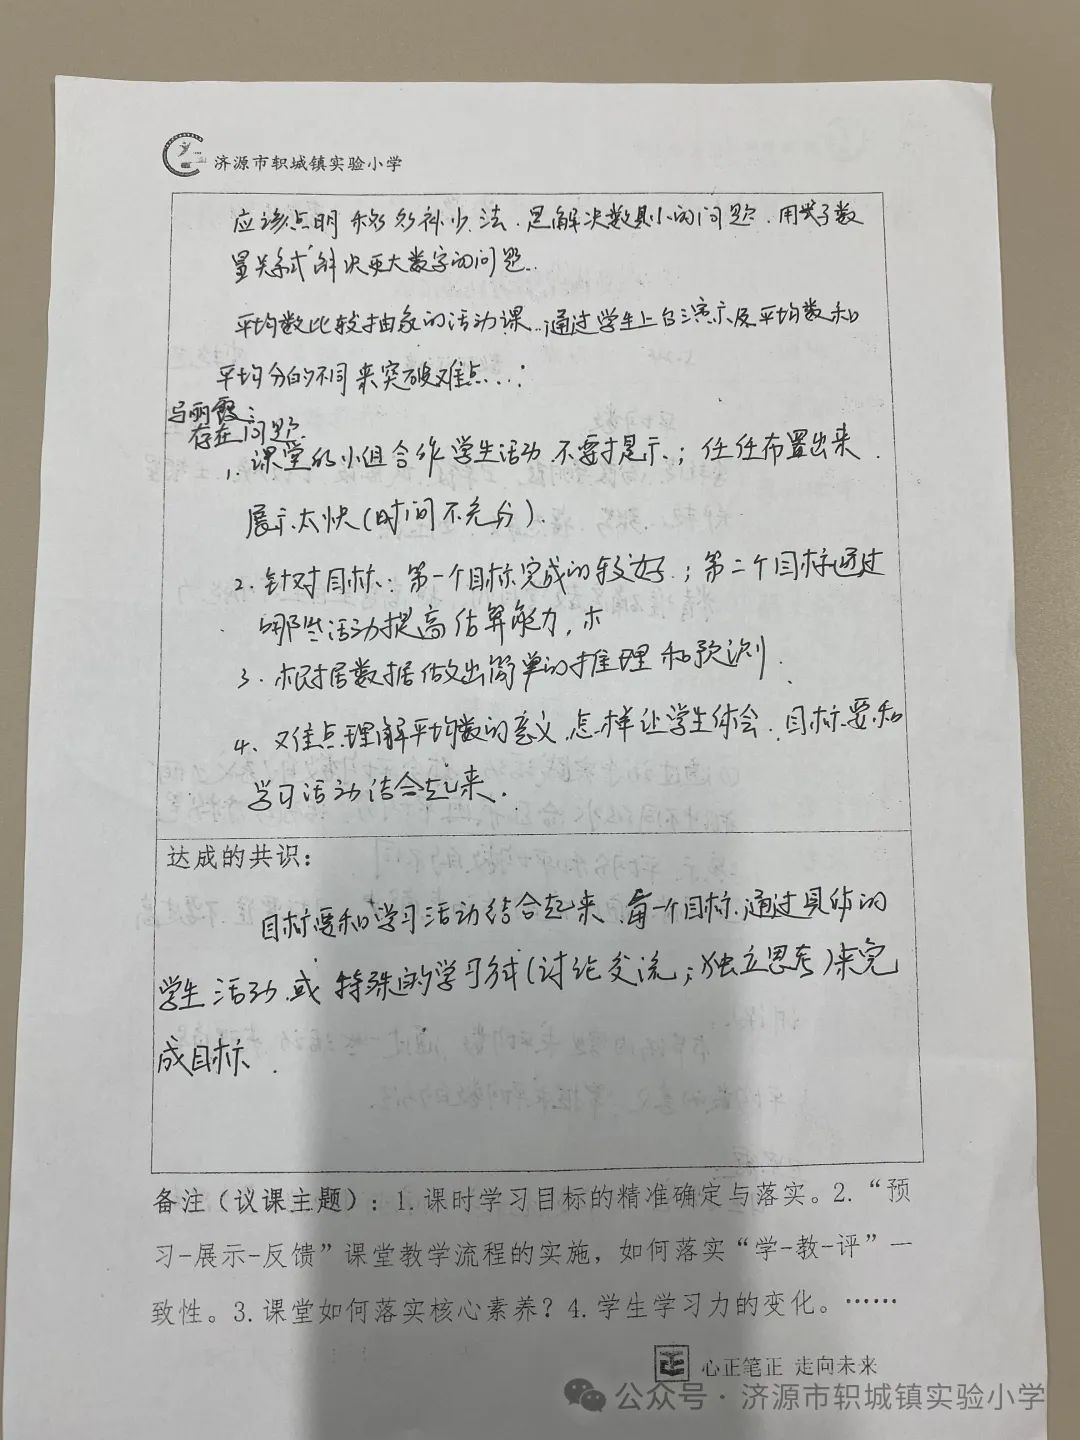 济源市轵城镇实验小学
应该点明移多补少法.是解决数具小的问题.用关于数
量关系式解决更大数字的问题.
平均数比较抽象的活动课..通过学生上台演示及平均数和
平均分的不同来突破难点...:
马丽霞:
存在问题.
1.课堂的小组合作学生活动.不要提示.;任任布置出来.
展示太快(时间不充分).
2.针对目标:第一个目标完成的较好.;第二个目标通过
哪些活动提高估算能力,
3.根据数据做出简单的推理和预测.
4、难点理解平均数的意义.怎样让学生体会.目标要和
学习活动结合起来.
达成的共识:
目标要和学习活动结合起来.每一个目标.通过具体的
学生活动.或特殊的学习方式(讨论交流;独立思考)来完
成目标.
备注(议课主题):1.课时学习目标的精准确定与落实。2.“预
习-展示-反馈”课堂教学流程的实施,如何落实“学-教-评”一
致性。3.课堂如何落实核心素养?4.学生学习力的变化。……
正 心正笔正 走向未来
公众号·济源市轵城镇实验小学